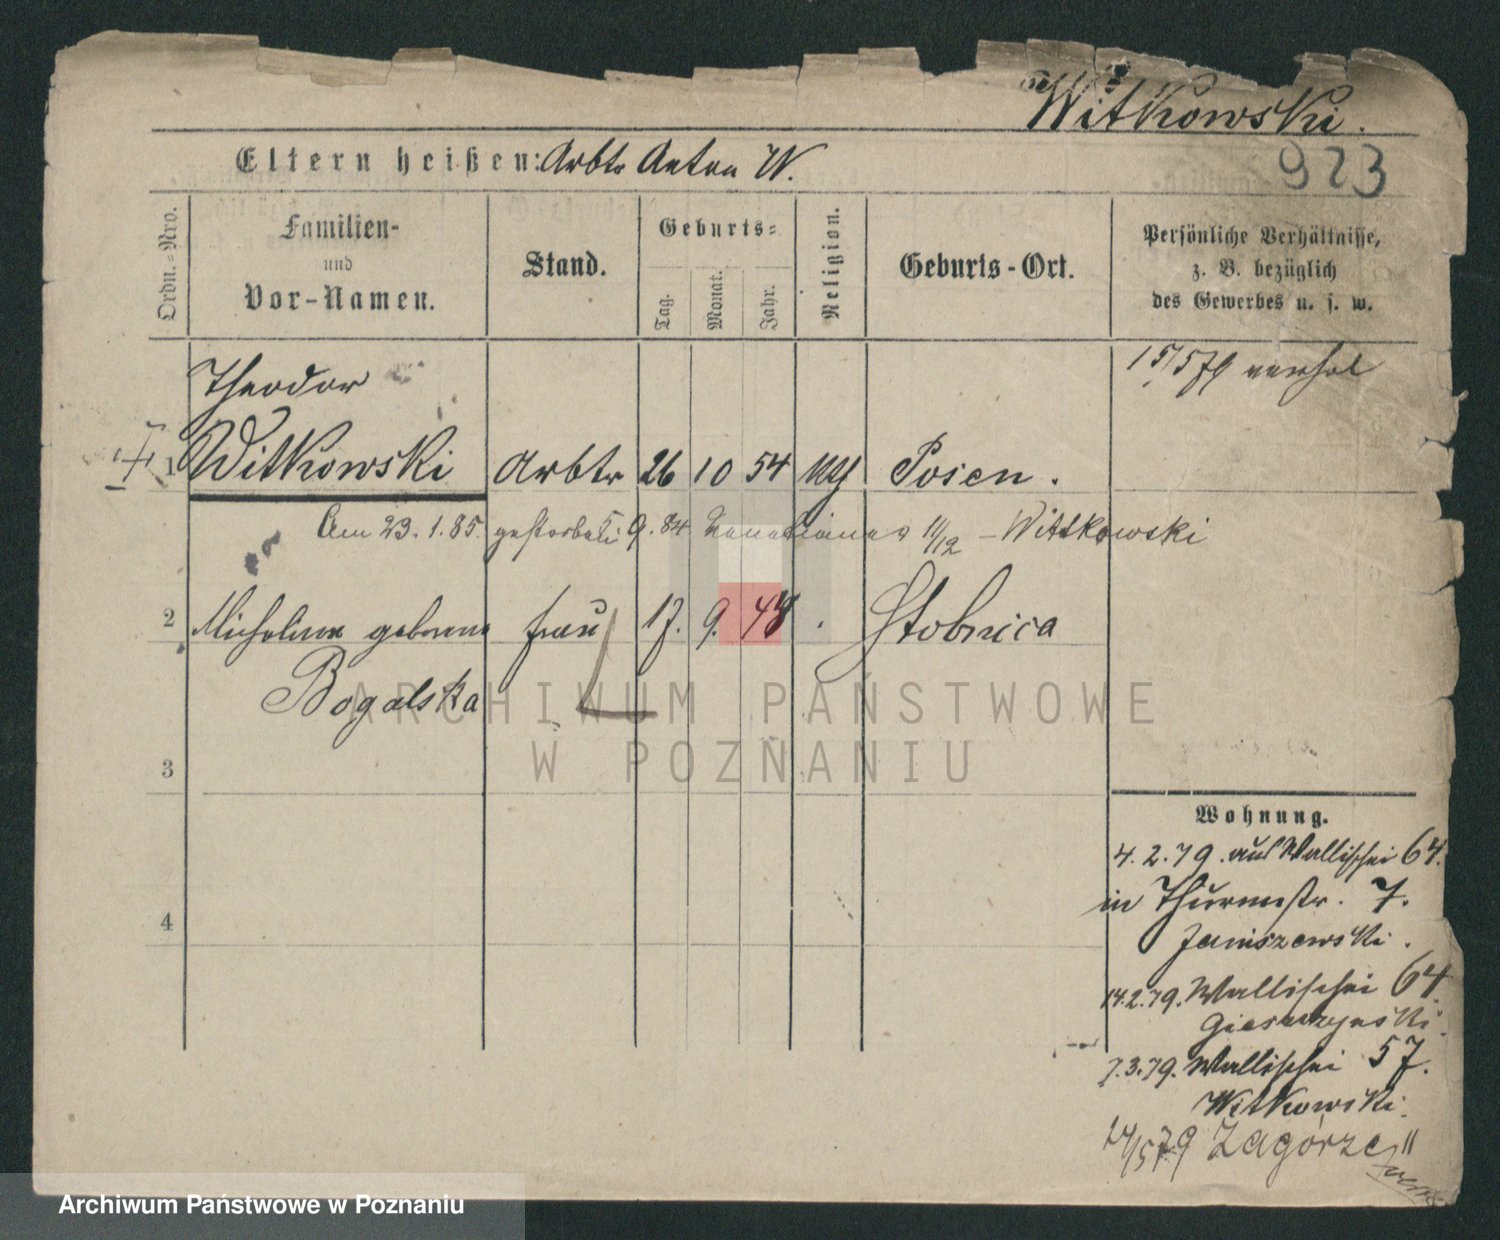 Witkowski.
923
Eltern heißen: Arbtr Anton W.
Ordn.-Nro.
Familien-
und
Vor-Namen.
Stand.
Geburts-
Tag.
Monat.
Jahr.
Religion.
Geburts-Ort.
Persönliche Verhältnisse,
z. B. bezüglich
des Gewerbes u. s. w.
15/5 79
Theodor
1 Witkowski Arbtr 26 10 54 Posen.
Am 23.1.85. gestorben 9.84 11/12 - Wittkowski
2 geborene frau 17. 9. 48 Stobnica
Bogalska
3
4
Wohnung.
4.2.79. aus Wallischei 64.
in Thurmstr. 7.
Janiszewski.
14.2.79. Wallischei 64.
7.3.79. Wallischei 57.
Witkowski.
Zagorze 11
ARCHIWUM PAŃSTWOWE
W POZNANIU
Archiwum Państwowe w Poznaniu